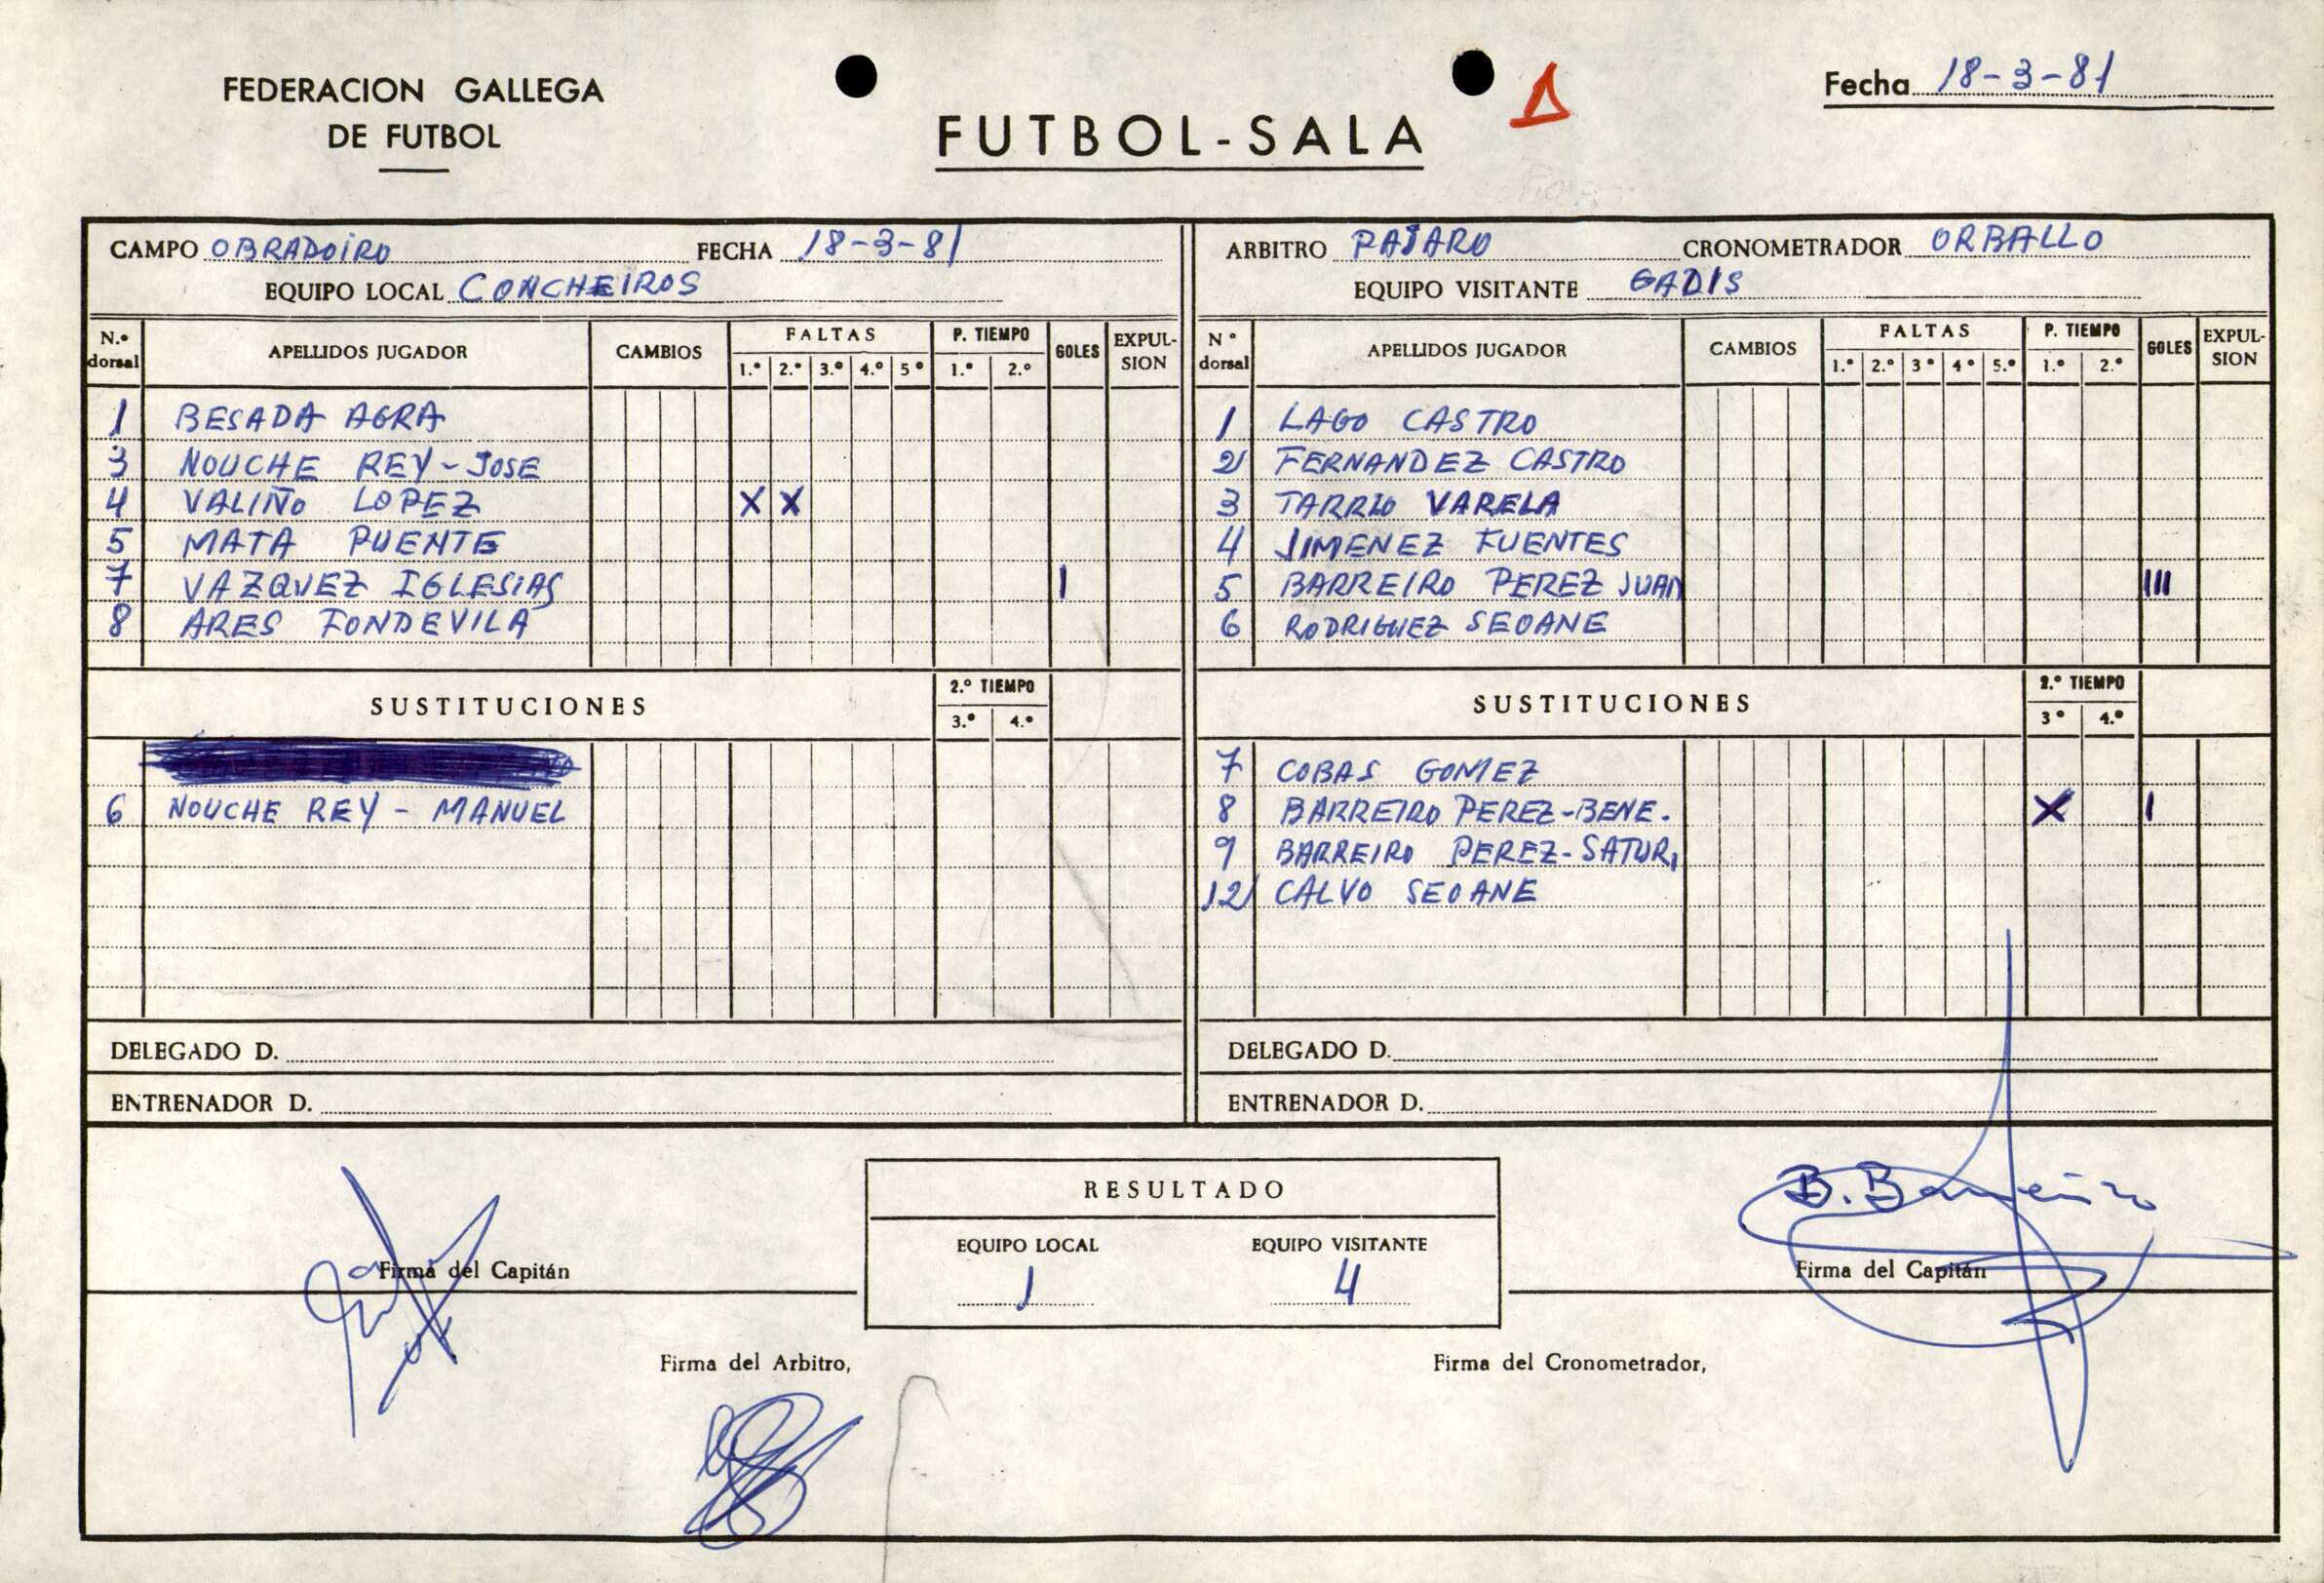 FEDERACION GALLEGA
DE FUTBOL
FUTBOL-SALA
Fecha 18-3-81
CAMPO OBRADOIRO FECHA 18-3-81
EQUIPO LOCAL CONCHEIROS
N.º dorsal APELLIDOS JUGADOR CAMBIOS FALTAS 1.º 2.º 3.º 4.º 5º P. TIEMPO 1.º 2.º GOLES EXPUL-SION
1 BESADA AGRA
3 NOUCHE REY-JOSE
4 VALIÑO LOPEZ X X
5 MATA PUENTE
7 VAZQUEZ IGLESIAS I
8 ARES FONDEVILA
SUSTITUCIONES 2.º TIEMPO 3.º 4.º
6 NOUCHE REY - MANUEL
DELEGADO D.
ENTRENADOR D.
ARBITRO PAJARO CRONOMETRADOR ORBALLO
EQUIPO VISITANTE GADIS
Nº dorsal APELLIDOS JUGADOR CAMBIOS FALTAS 1.º 2.º 3º 4º 5.º P. TIEMPO 1.º 2.º GOLES EXPUL-SION
1 LAGO CASTRO
2 FERNANDEZ CASTRO
3 TARRIO VARELA
4 JIMENEZ FUENTES
5 BARREIRO PEREZ JUAN III
6 RODRIGUEZ SEOANE
SUSTITUCIONES 2.º TIEMPO 3º 4.º
7 COBAS GOMEZ
8 BARREIRO PEREZ-BENE. X I
9 BARREIRO PEREZ-SATUR.
12 CALVO SEOANE
DELEGADO D.
ENTRENADOR D.
RESULTADO
EQUIPO LOCAL EQUIPO VISITANTE
1 4
Firma del Capitán
B. Barreiro
Firma del Capitán
Firma del Arbitro,
Firma del Cronometrador,